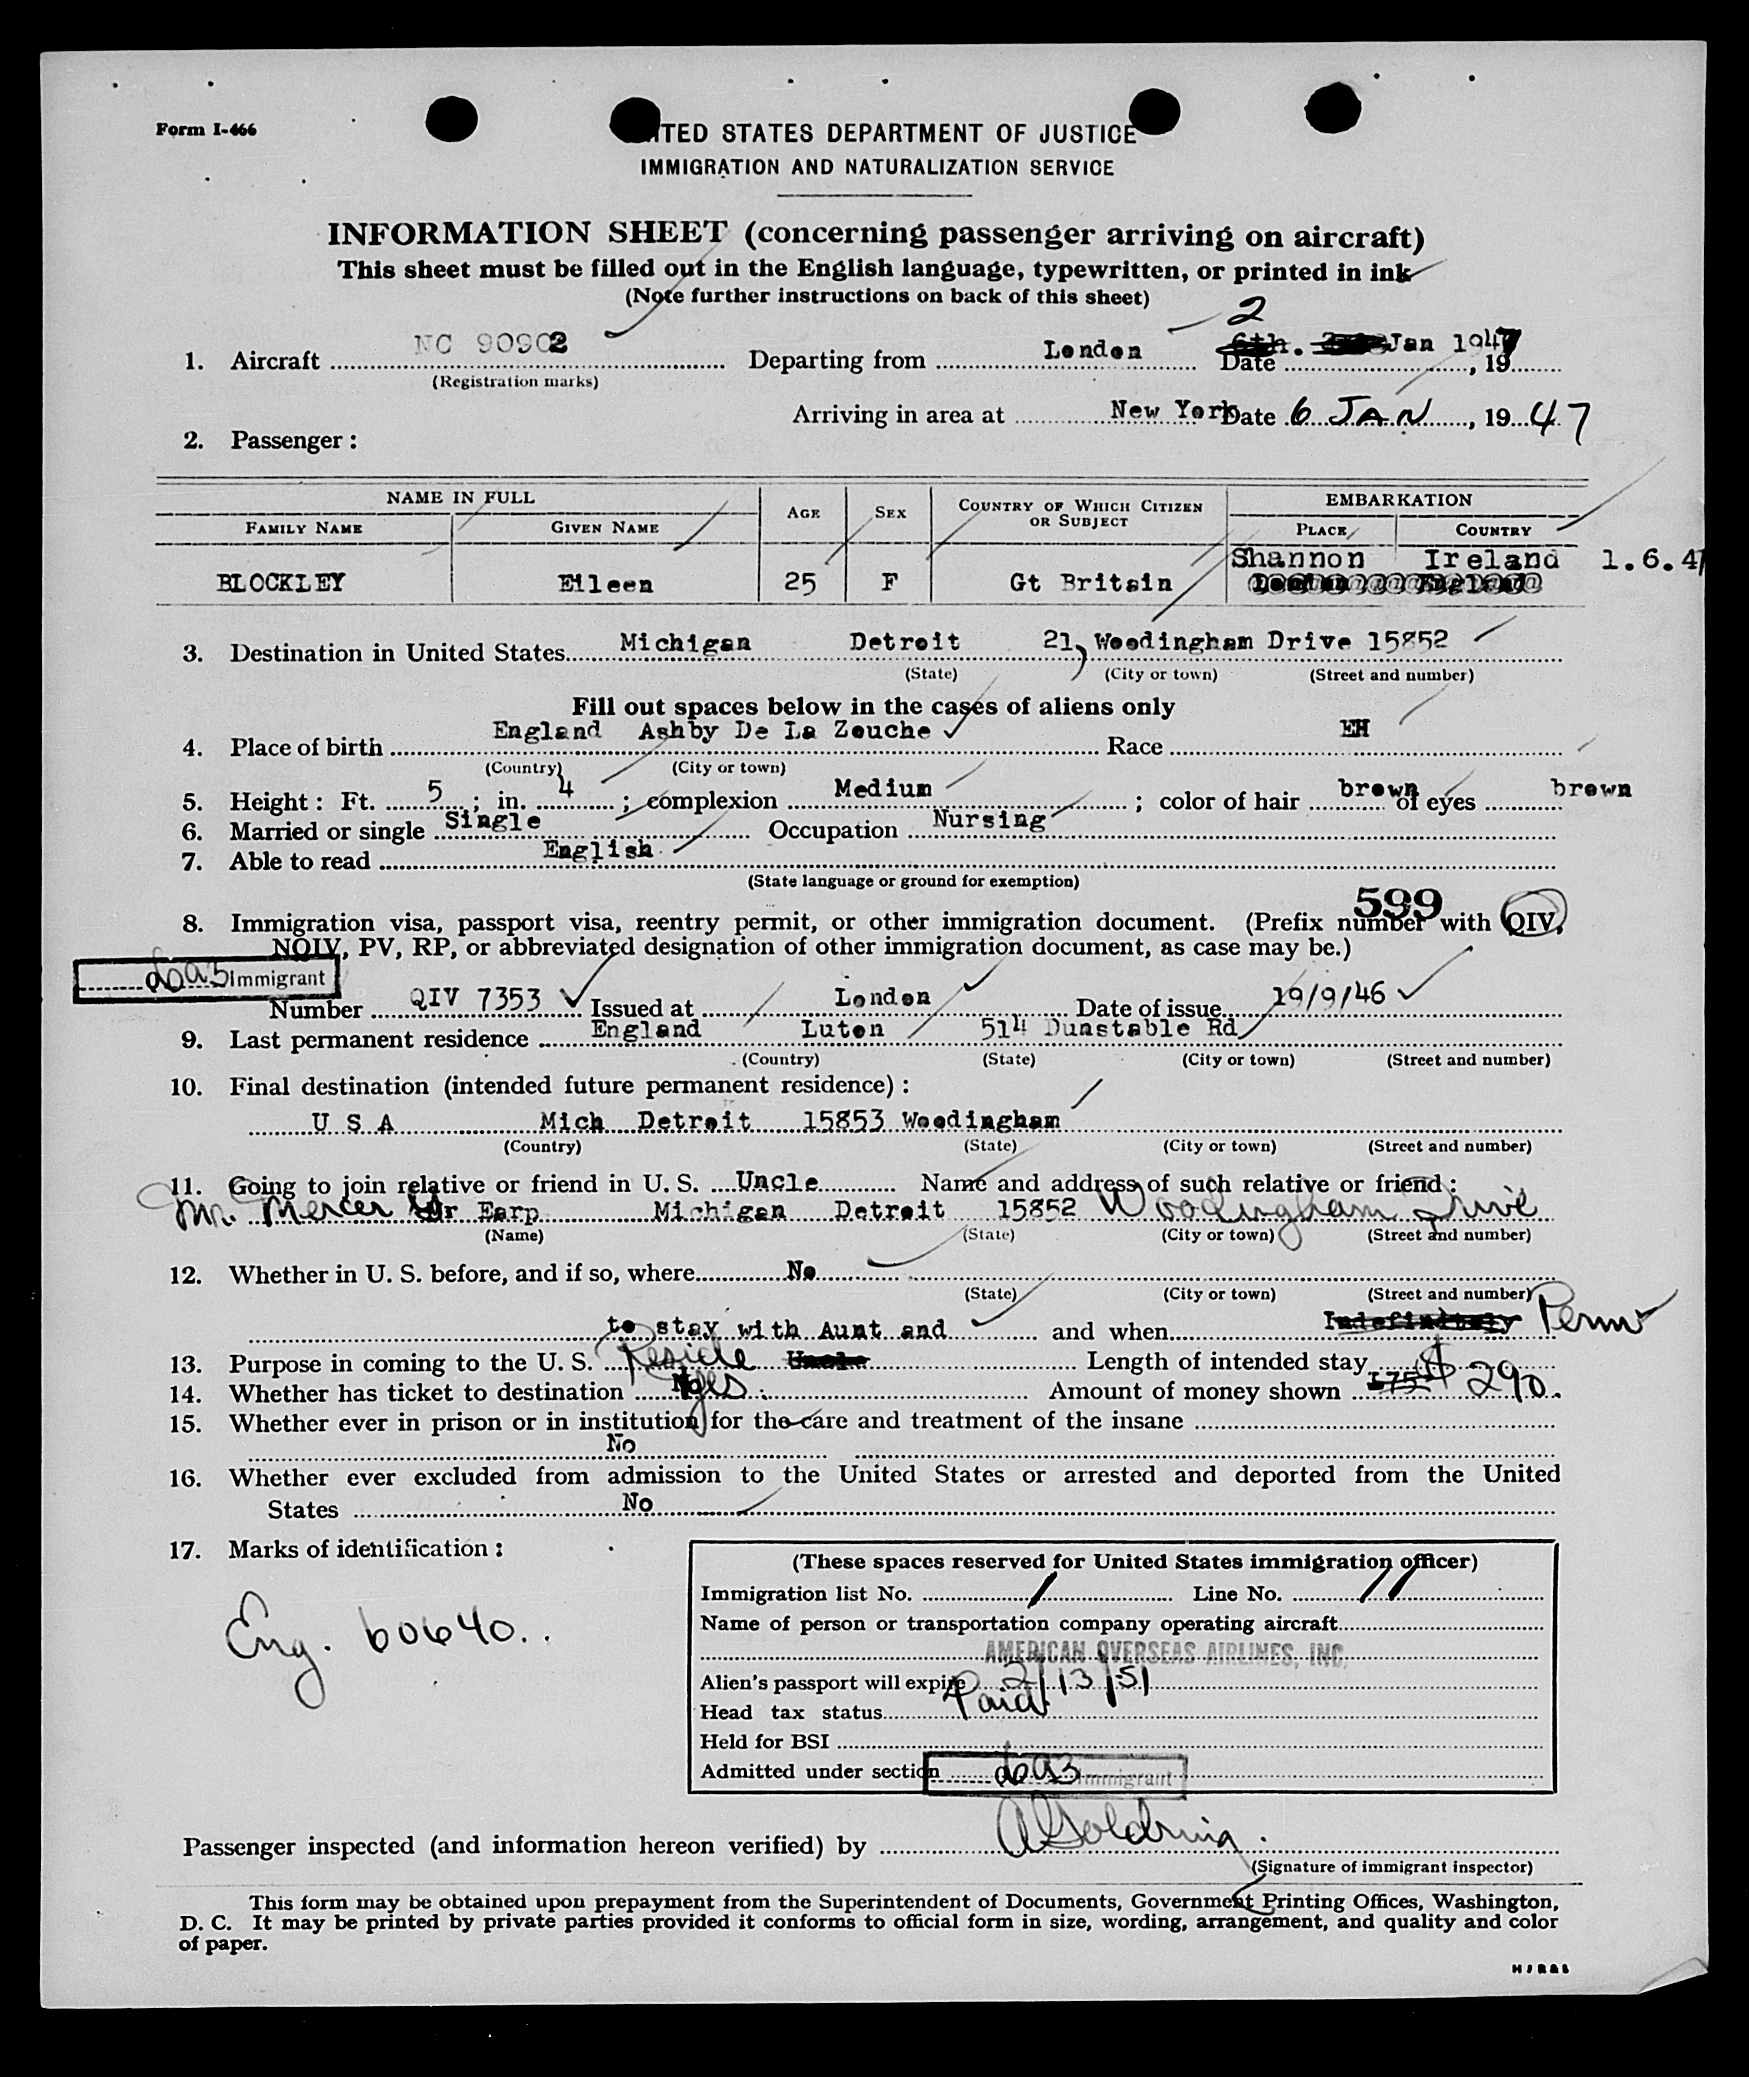 Form I-466
UNITED STATES DEPARTMENT OF JUSTICE
IMMIGRATION AND NATURALIZATION SERVICE
INFORMATION SHEET (concerning passenger arriving on aircraft)
This sheet must be filled out in the English language, typewritten, or printed in ink
(Note further instructions on back of this sheet)
1. Aircraft NC 90902 Departing from London Date 2 Jan 1947, 19
(Registration marks)
Arriving in area at New York Date 6 JAN, 1947
2. Passenger:
NAME IN FULL AGE SEX COUNTRY OF WHICH CITIZEN OR SUBJECT EMBARKATION
FAMILY NAME GIVEN NAME PLACE COUNTRY
Shannon Ireland 1.6.47
BLOCKLEY Eileen 25 F Gt Britain
3. Destination in United States Michigan Detroit 21, Woodingham Drive 15852
(State) (City or town) (Street and number)
Fill out spaces below in the cases of aliens only
4. Place of birth England Ashby De La Zouche Race EH
(Country) (City or town)
5. Height: Ft. 5; in. 4; complexion Medium; color of hair brown of eyes brown
6. Married or single Single Occupation Nursing
7. Able to read English
(State language or ground for exemption)
599
8. Immigration visa, passport visa, reentry permit, or other immigration document. (Prefix number with QIV,
NQIV, PV, RP, or abbreviated designation of other immigration document, as case may be.)
6a3 Immigrant
Number QIV 7353 Issued at London Date of issue 19/9/46
9. Last permanent residence England Luton 514 Dunstable Rd
(Country) (State) (City or town) (Street and number)
10. Final destination (intended future permanent residence):
U S A Mich Detroit 15853 Woodingham
(Country) (State) (City or town) (Street and number)
11. Going to join relative or friend in U. S. Uncle Name and address of such relative or friend:
Mr. Mercer Earp Michigan Detroit 15852 Woodingham Drive
(Name) (State) (City or town) (Street and number)
12. Whether in U. S. before, and if so, where No
(State) (City or town) (Street and number)
to stay with Aunt and and when Indefinitely Perm
13. Purpose in coming to the U. S. Reside Uncle Length of intended stay
14. Whether has ticket to destination Yes Amount of money shown 175 $ 290.
15. Whether ever in prison or in institution for the care and treatment of the insane
No
16. Whether ever excluded from admission to the United States or arrested and deported from the United
States No
17. Marks of identification:
Eng. 60640..
(These spaces reserved for United States immigration officer)
Immigration list No. 1 Line No. 11
Name of person or transportation company operating aircraft
AMERICAN OVERSEAS AIRLINES, INC.
Alien's passport will expire 2/13/51
Head tax status Paid
Held for BSI
Admitted under section 6a3 Immigrant
Passenger inspected (and information hereon verified) by A Goldring.
(Signature of immigrant inspector)
This form may be obtained upon prepayment from the Superintendent of Documents, Government Printing Offices, Washington,
D. C. It may be printed by private parties provided it conforms to official form in size, wording, arrangement, and quality and color
of paper.